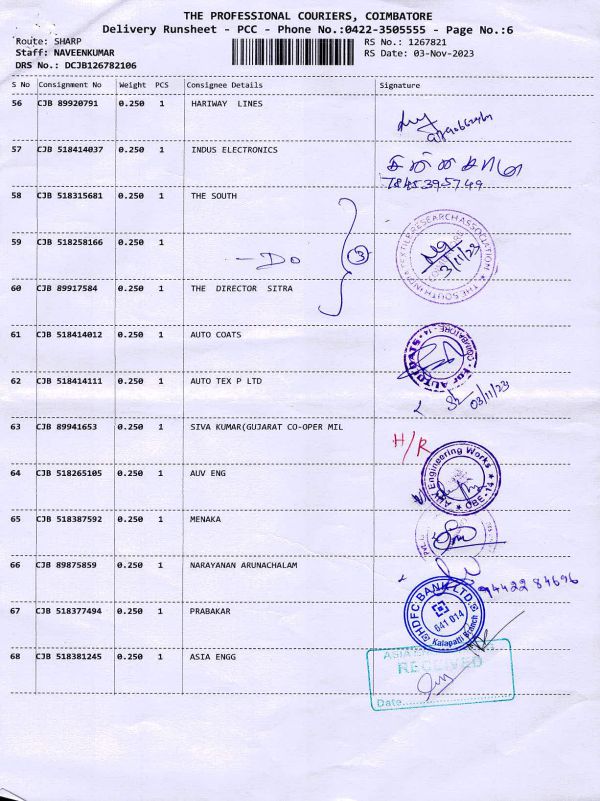 THE PROFESSIONAL COURIERS, COIMBATORE
Delivery Runsheet - PCC - Phone No.:0422-3505555 - Page No.:6
Route: SHARP RS No.: 1267821
Staff: NAVEENKUMAR RS Date: 03-Nov-2023
DRS No.: DCJB126782106
S No Consignment No Weight PCS Consignee Details Signature
56 CJB 89920791 0.250 1 HARIWAY LINES
57 CJB 518414037 0.250 1 INDUS ELECTRONICS
7845395749
58 CJB 518315681 0.250 1 THE SOUTH
59 CJB 518258166 0.250 1 - Do 3 3/11/23
THE SOUTH INDIA TEXTILE RESEARCH ASSOCIATION
60 CJB 89917584 0.250 1 THE DIRECTOR SITRA
61 CJB 518414012 0.250 1 AUTO COATS
For AUTO COATS COIMBATORE - 14
62 CJB 518414111 0.250 1 AUTO TEX P LTD 03/11/23
63 CJB 89941653 0.250 1 SIVA KUMAR(GUJARAT CO-OPER MIL H/R
64 CJB 518265105 0.250 1 AUV ENG
Engineering Works CBE-14
65 CJB 518387592 0.250 1 MENAKA
66 CJB 89875859 0.250 1 NARAYANAN ARUNACHALAM
94422 84696
67 CJB 518377494 0.250 1 PRABAKAR
HDFC BANK LTD. 641 014 Kalapatti Branch
68 CJB 518381245 0.250 1 ASIA ENGG
ASIA
RECEIVED
Date